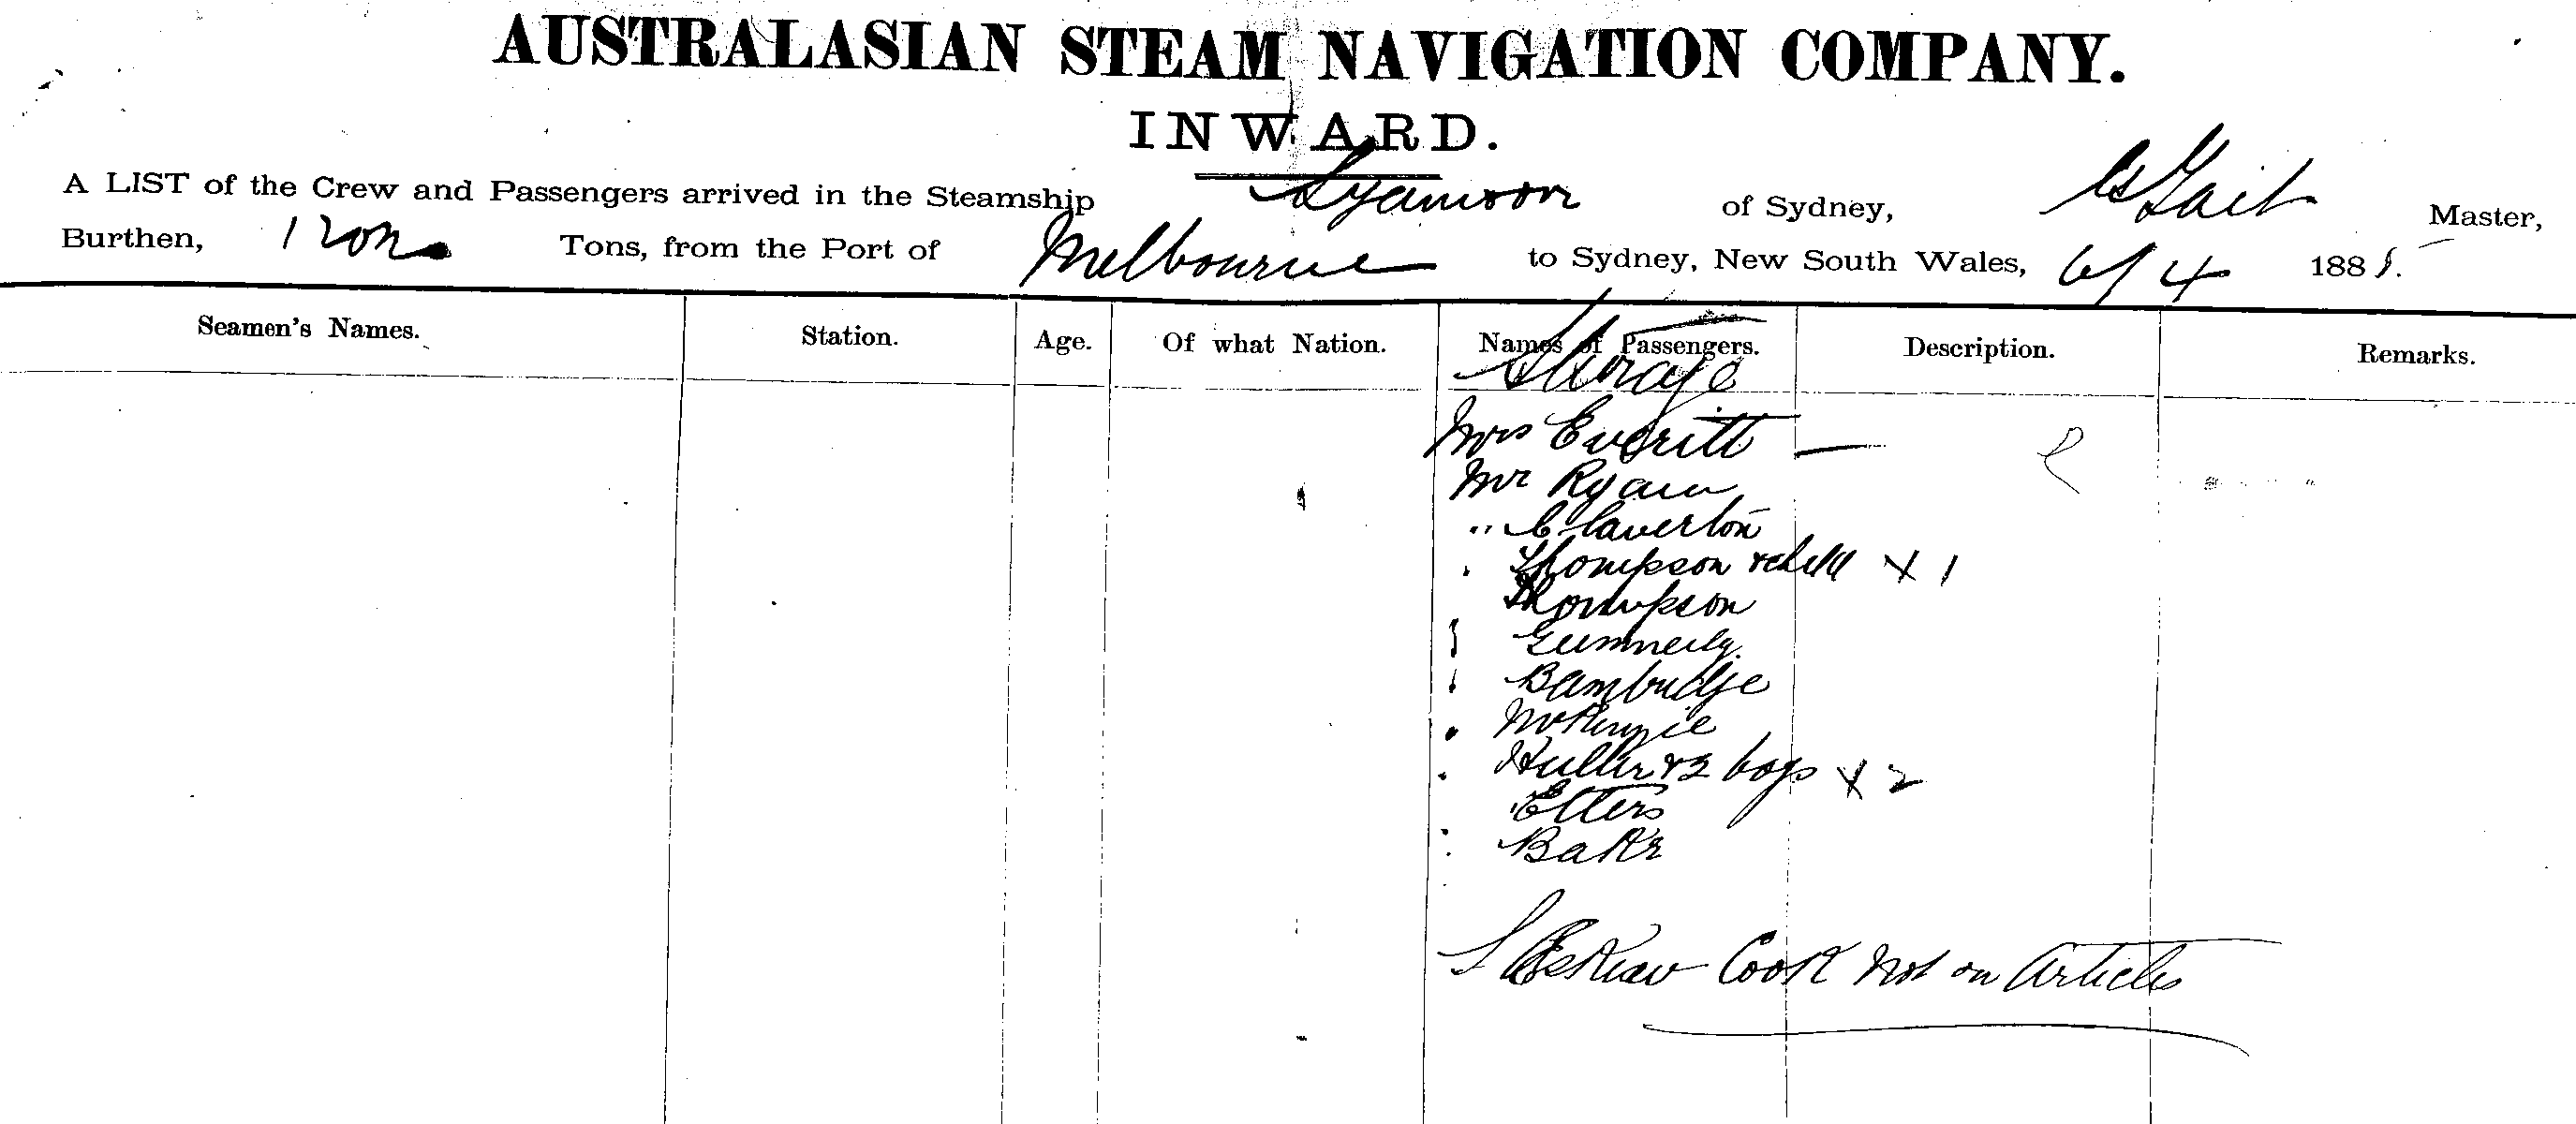 AUSTRALASIAN STEAM NAVIGATION COMPANY.
INWARD.
A LIST of the Crew and Passengers arrived in the Steamship Lyamoon of Sydney, Gait Master,
Burthen, Tons, from the Port of Melbourne to Sydney, New South Wales, 6/4 188
Seamen's Names. Station. Age. Of what Nation. Names of Passengers. Description. Remarks.
Steerage
Mrs Everitt —
Mr Ryan
" Claverton
Thompson & child X 1
Thompson
Bambridge
McKenzie
Huller & 2 boys X 2
Etters
Baker
Cook not on Articles